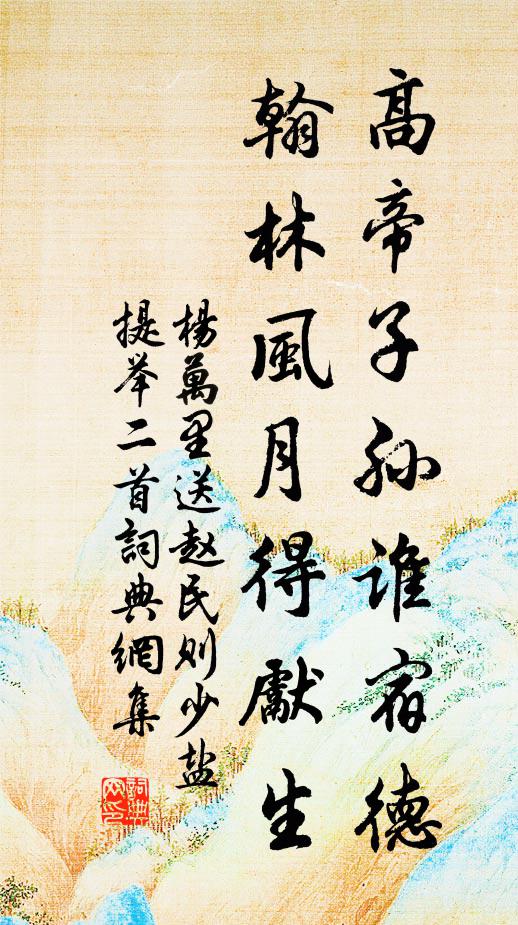 高帝子孙谁宿德
翰林風月得獻生
楊萬里送赵民则少盐
提举二首詞典網集
詞典网印